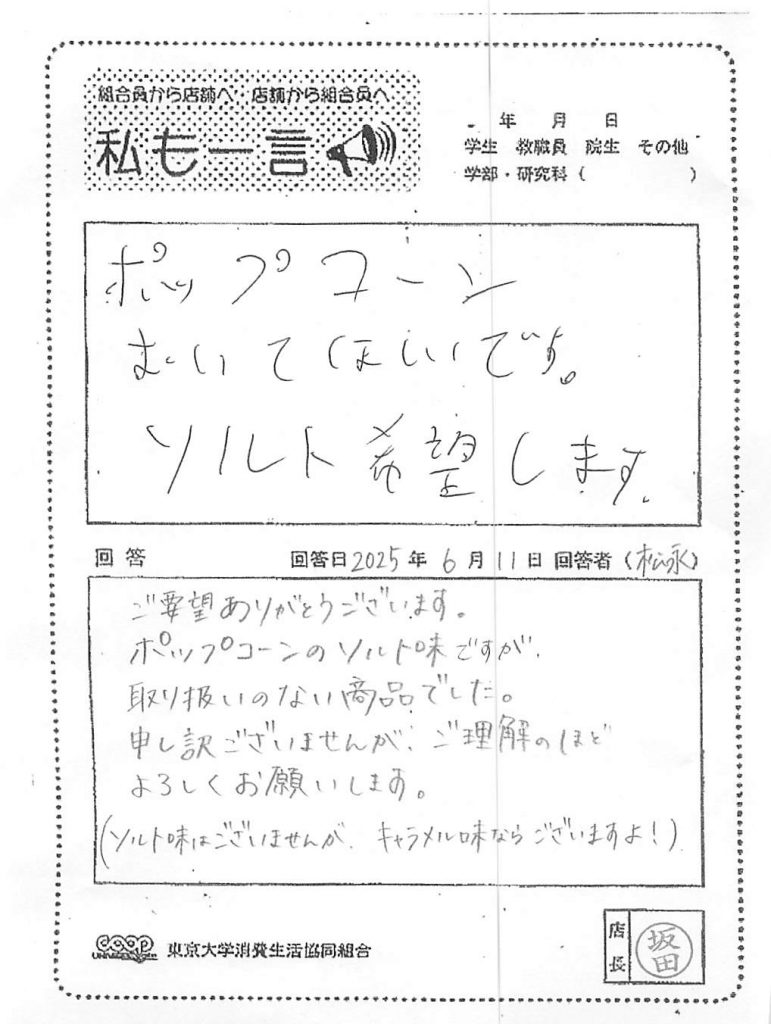 組合員から店舗へ・店舗から組合員へ
私も一言
年 月 日
学生 教職員 院生 その他
学部・研究科( )
ポップコーン
おいてほしいです。
ソルト希望します。
回答 回答日2025年6月11日 回答者(松永)
ご要望ありがとうございます。
ポップコーンのソルト味ですが、
取り扱いのない商品でした。
申し訳ございませんが、ご理解のほど
よろしくお願いします。
(ソルト味はございませんが、キャラメル味ならございますよ!)
coop
東京大学消費生活協同組合
店長
坂田